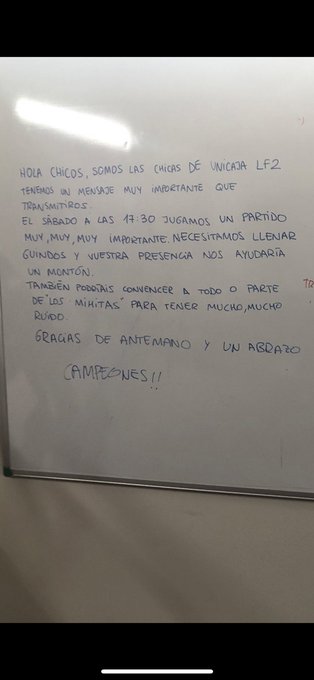 HOLA CHICOS, SOMOS LAS CHICAS DE UNICAJA LF2
TENEMOS UN MENSAJE MUY IMPORTANTE QUE
TRANSMITIROS.
EL SÁBADO A LAS 17:30 JUGAMOS UN PARTIDO
MUY, MUY, MUY IMPORTANTE. NECESITAMOS LLENAR
GUINDOS Y VUESTRA PRESENCIA NOS AYUDARÍA
UN MONTÓN.
TAMBIÉN PODRÍAIS CONVENCER A TODO O PARTE
DE "LOS MIHITAS" PARA TENER MUCHO, MUCHO
RUIDO.
GRACIAS DE ANTEMANO Y UN ABRAZO
CAMPEONES!!